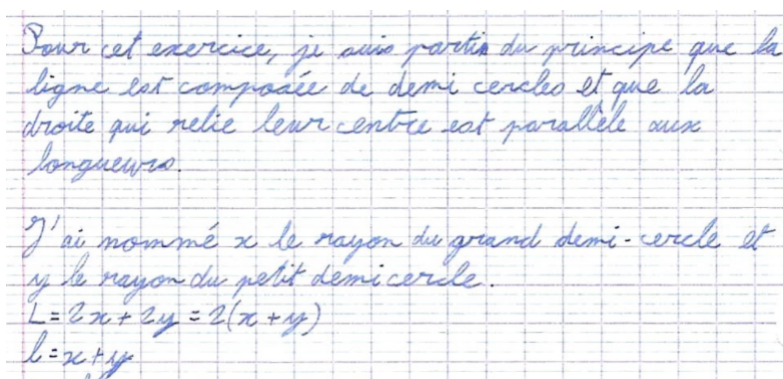 Pour cet exercice, je suis partie du principe que la
ligne est composée de demi cercles et que la
droite qui relie leur centre est parallèle aux
longueurs.
J'ai nommé x le rayon du grand demi-cercle et
y le rayon du petit demi cercle.
L = 2x + 2y = 2(x + y)
l = x + y